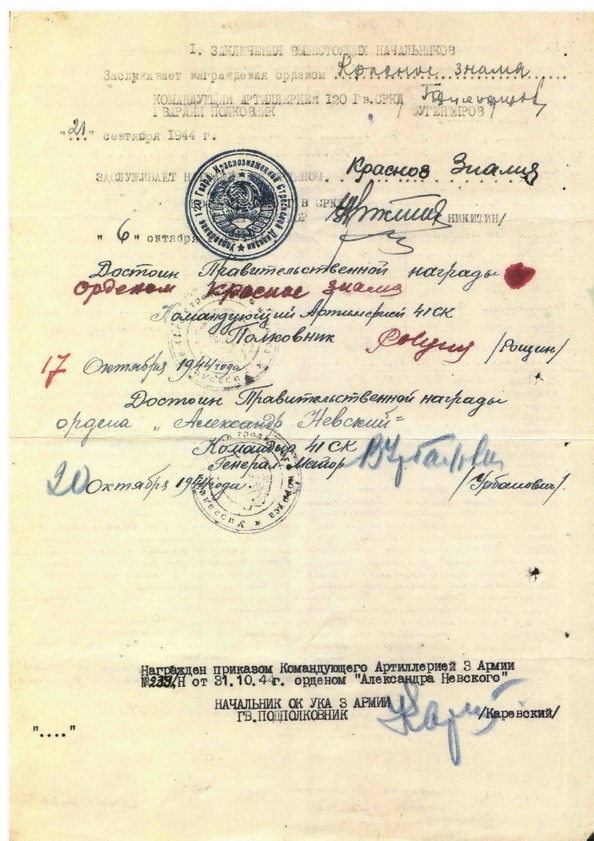 I. ЗАКЛЮЧЕНИЯ ВЫШЕСТОЯЩИХ НАЧАЛЬНИКОВ
Заслуживает награждения орденом Красное знамя
КОМАНДУЮЩИЙ АРТИЛЛЕРИЕЙ 120 Гв.СРКД
ГВАРДИИ ПОЛКОВНИК
"21" сентября 1944 г.
ЗАСЛУЖИВАЕТ Красное Знамя
НИКИТИН/
"6" октября
Достоин Правительственной награды
Орденом Красное знамя
Командующий Артилерией 41 СК
Полковник /Рощин/
17 Октября 1944 года
Достоин Правительственной награды
ордена „Александр Невский"
Командир 41 СК
Генерал-Майор
20 Октября 1944 года /Урбанович/.
Награжден приказом Командующего Артиллерией 3 Армии
№ 239/Н от 31.10.44 г. орденом "Александра Невского"
НАЧАЛЬНИК ОК УКА 3 АРМИИ
ГВ.ПОДПОЛКОВНИК /Каревский/
"...."